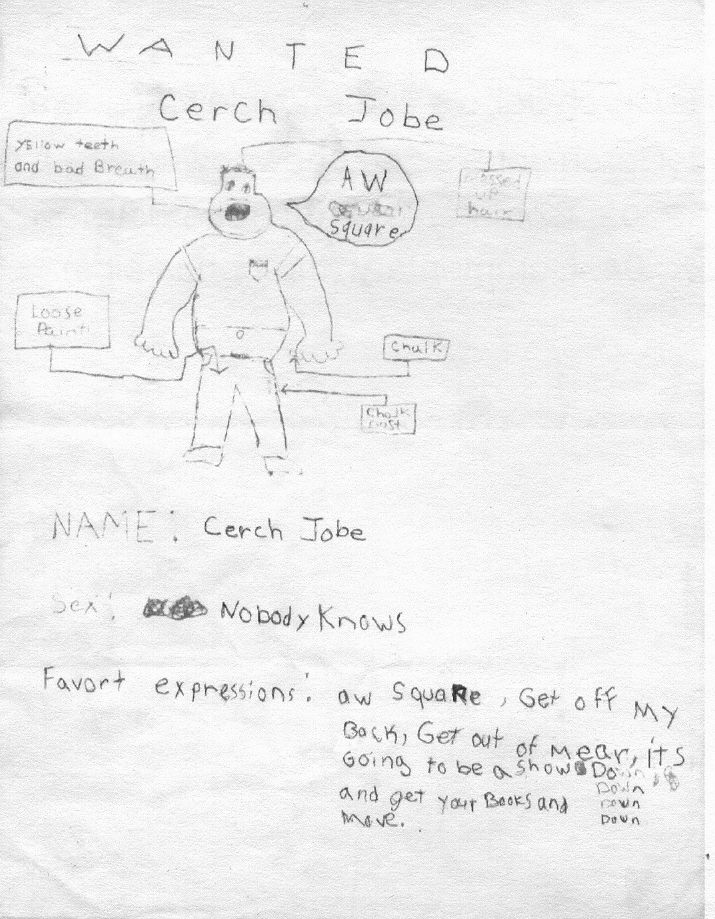 WANTED
Cerch Jobe
Yellow teeth
and bad Breath
AW
Square
up
hair
Loose
Paint
Chalk
Chalk
Dust
NAME: Cerch Jobe
Sex: Nobody Knows
Favort expressions: aw Square, Get off My
Back, Get out of Mear, it's
Going to be a show Down
Down
and get your Books and Down
Move. Down